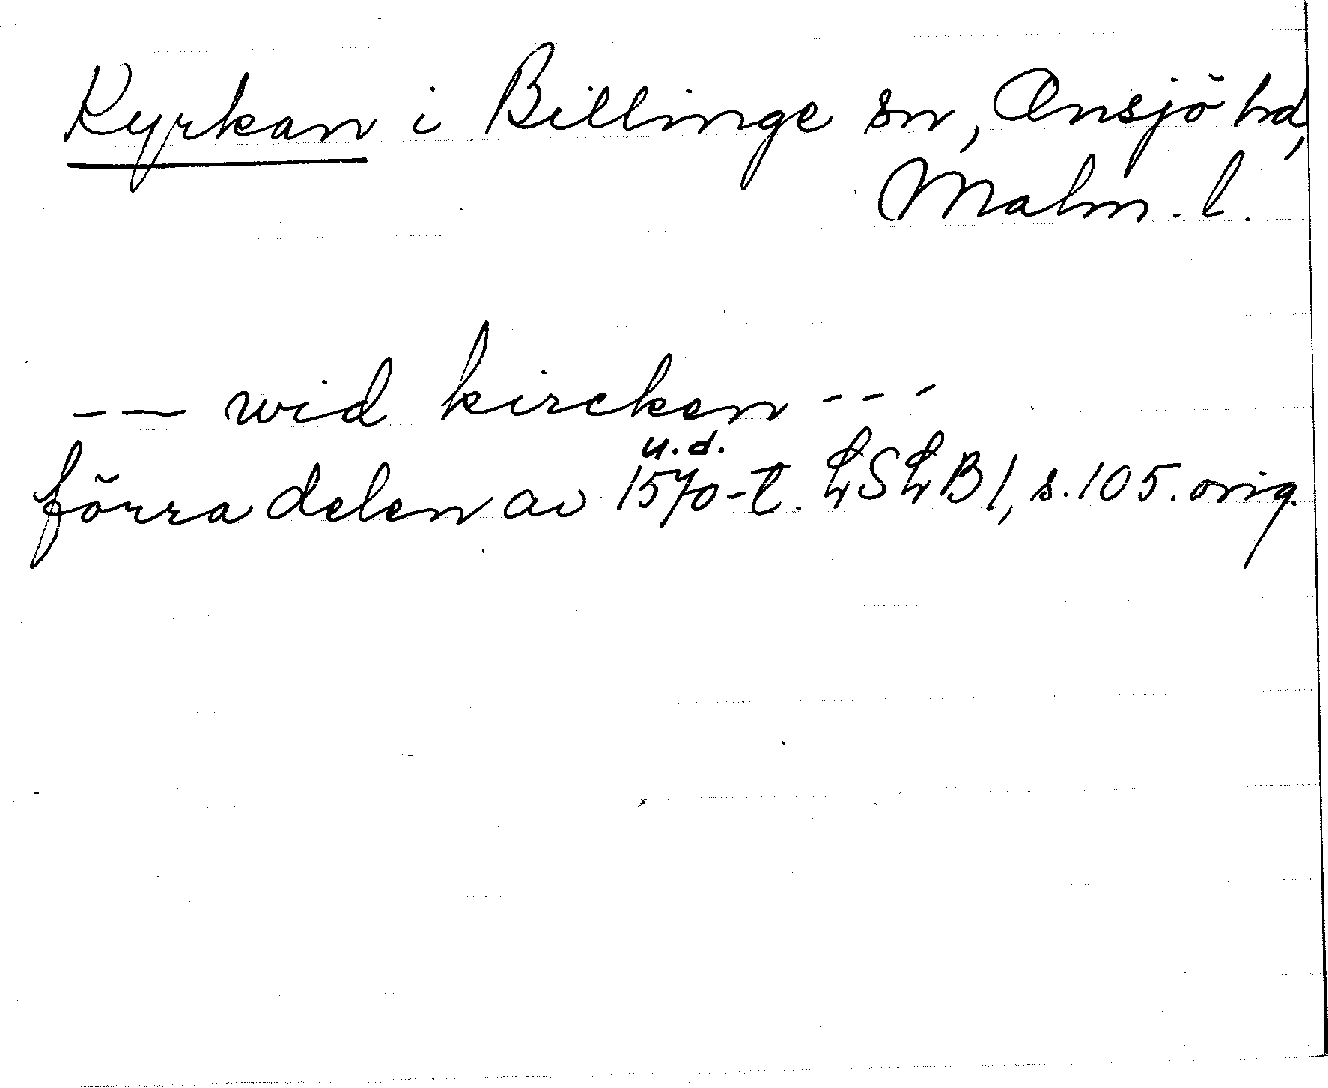 Kyrkan i Billinge sn, Onsjö hd,
Malm. l.
-- wid kircken ---
u.d.
förra delen av 1570-t. LSLB 1, s. 105. orig.